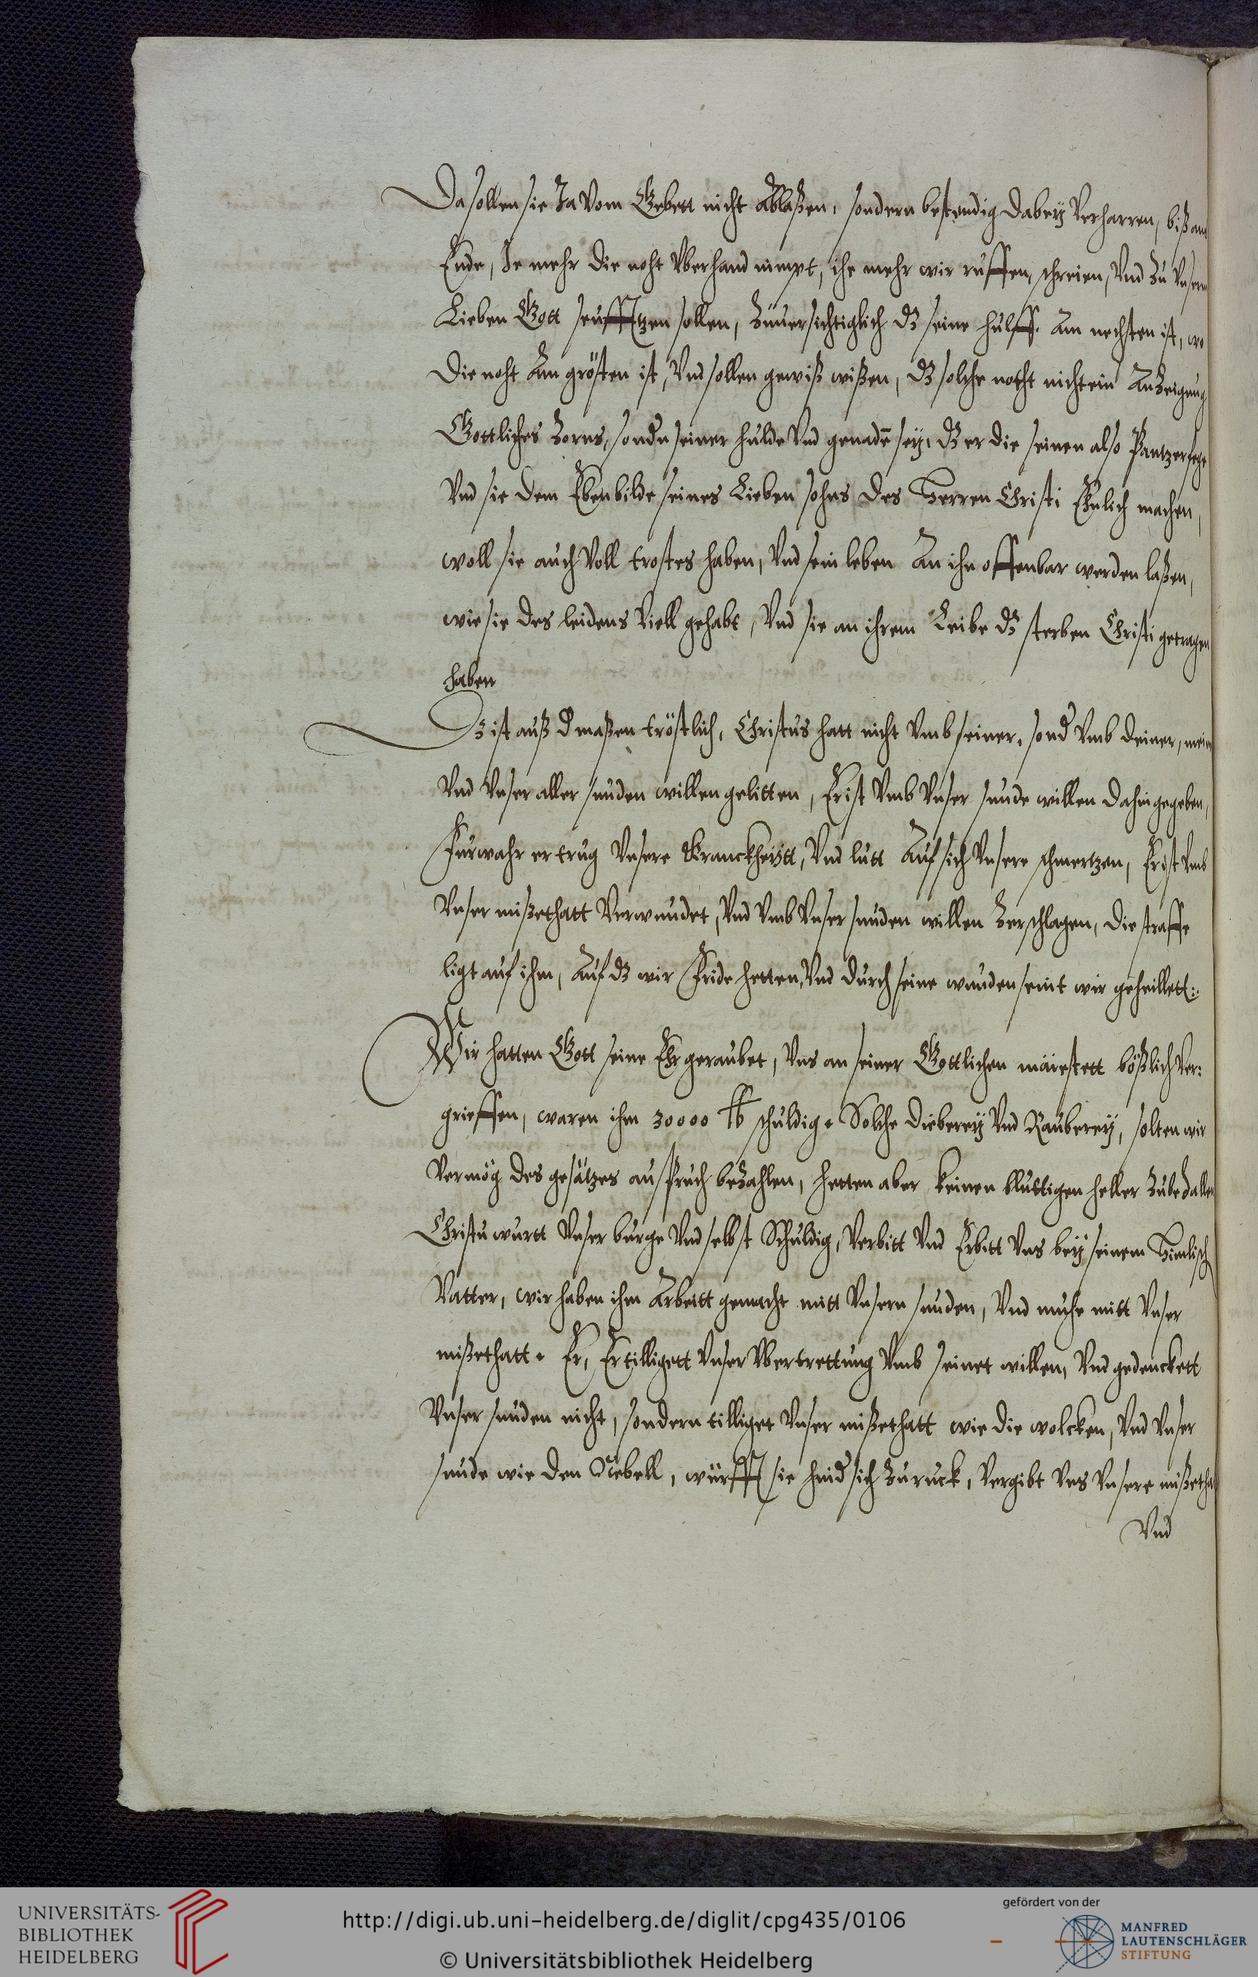 Da sollen sie Ja Vom Gebett nicht Ablaßen, sondern bestendig dabey Verharren, biß ans
Ende, Je mehr die noht Vberhand nimpt, ihe mehr wir ruffen, schreien, Vnd Zu Vnserm
Lieben Gott seufftzen sollen, Zuuersichtiglich dz seine hulff Am nechsten ist, wo
Die noht Am grösten ist, Vnd sollen gewiß wißen, dz solche notht nicht ein AnZeigung
Gottliches Zorns, sondn seiner hulde Vnd genadē sey, dz er die seinen also Pantzerfege
Vnd sie dem Ebenbilde seines Lieben sohns des Herren Christi Ehnlich machen,
woll sie auch Voll trostes haben, Vnd sein leben An ihn offenbar werden laßen,
wie sie des leidens Viell gehabt, Vnd sie an ihrem Leibe dz sterben Christi getragen
haben
Dz ist auß d maßen tröstlich, Christus hatt nicht Vmb seiner, sond Vmb deiner, mein
Vnd Vnser aller sunden willen gelitten, Er ist Vmb Vnser sunde willen dahin gegeben,
Furwahr er trug Vnsere Kranckheytt, Vnd lutt Auf sich Vnsere schmertzen, Er ist Vmb
Vnser mißethatt Verwundet, Vnd Vmb Vnser sunden willen Zerschlagen, die straffe
ligt auf ihm, Auf dz wir Fride hetten, Vnd durch seine wunden seint wir geheillett:.
Wir hatten Gott seine Ehr geraubet, Vns an seiner Gottlichen maiestett bößlich Ver-
grieffen, waren ihm 30000 ℔ schuldig. Solche dieberey Vnd Rauberey, solten wir
Vermög des gesätzes auspruch beZahlen, hetten aber keinen bluttigen heller Zube dallen
Christu wurtt Vnser burge Vnd selbst Schuldig, Verbitt Vnd Erbitt Vns bey seinem Himlisch
Vatter, wir haben ihm Arbeitt gemacht mitt Vnsern sunden, Vnd muhe mitt Vnser
mißethatt. Er, Er tilligett Vnser Vbertrettung Vmb seinet willen, Vnd gedenckett
Vnser sunden nicht, sondern tilliget Vnser mißethatt wie die wolcken, Vnd Vnser
sunde wie den Nebell, würfft sie hind sich Zuruck, Vergibt Vns Vnsere mißetha
Vnd
UNIVERSITÄTS-
BIBLIOTHEK
HEIDELBERG
http://digi.ub.uni-heidelberg.de/diglit/cpg435/0106
© Universitätsbibliothek Heidelberg
gefördert von der
MANFRED
LAUTENSCHLÄGER
STIFTUNG